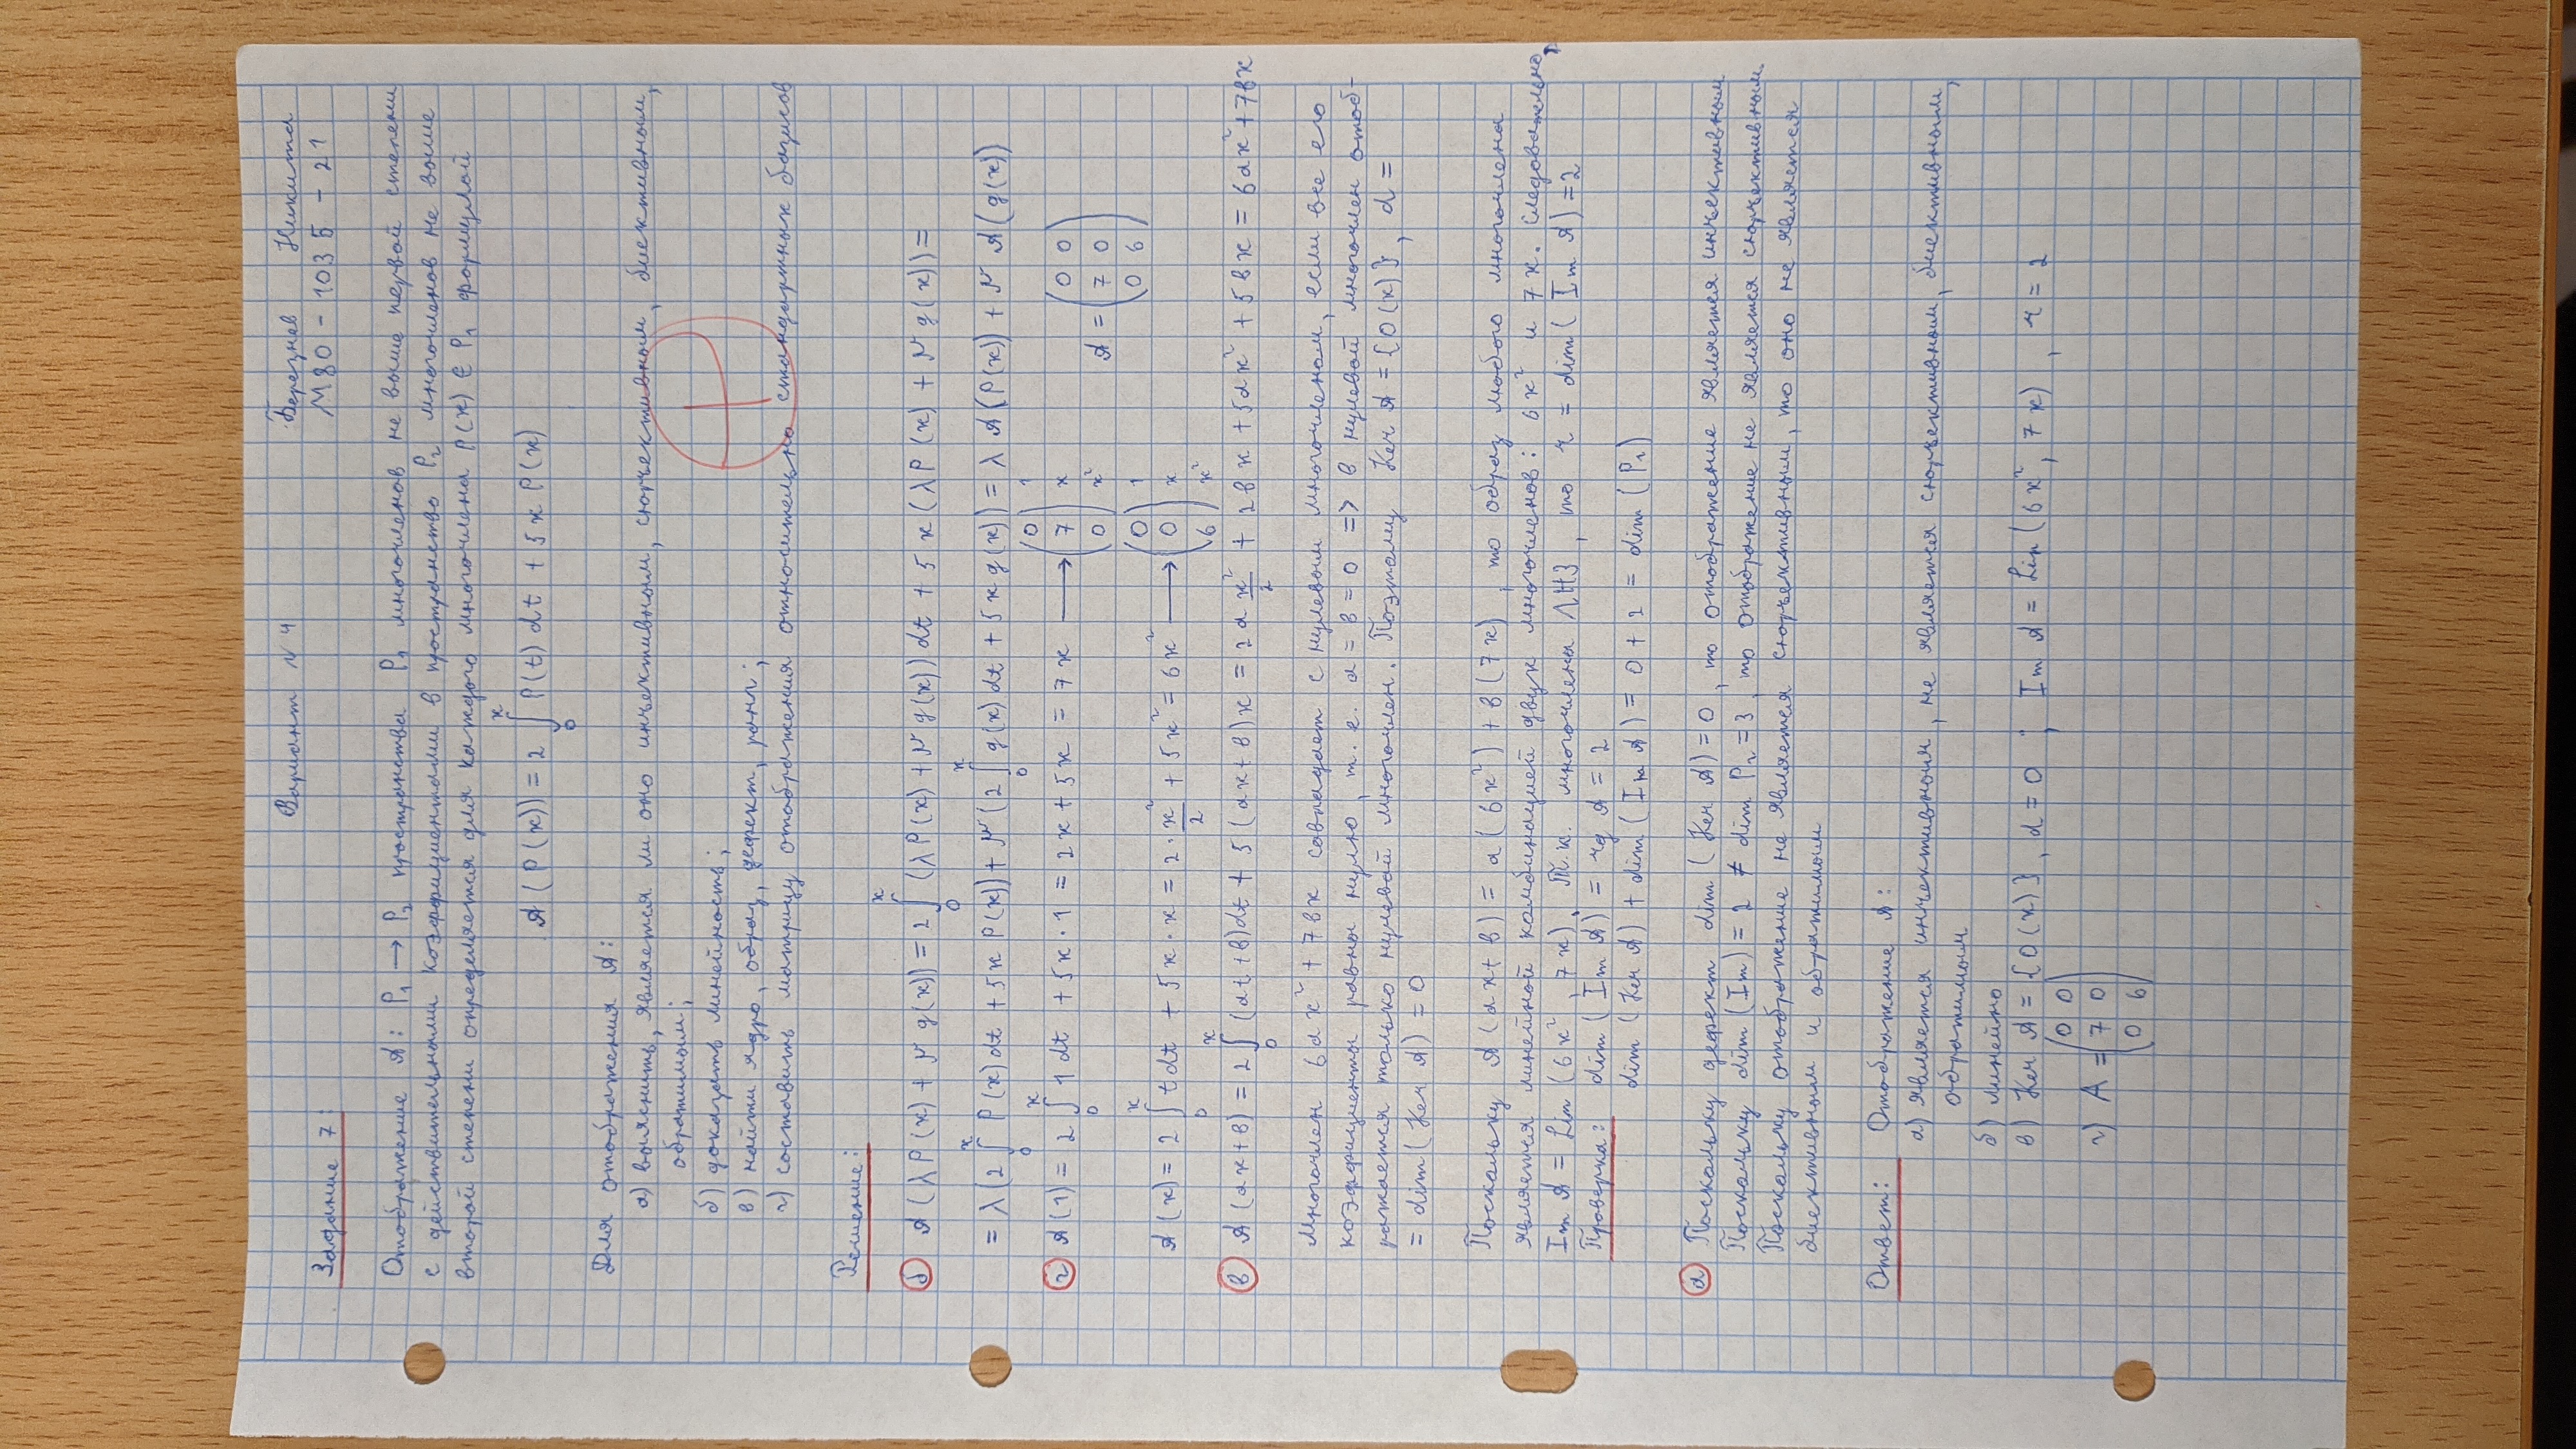 Вариант №4
Березнев Никита
Задание 7:
М80 - 103Б - 21
Отображение A: P₁ → P₂ пространства P₁ многочленов не выше первой степени
с действительными коэффициентами в пространство P₂ многочленов не выше
второй степени определяется для каждого многочлена P(x) ∈ P₁ формулой
A(P(x)) = 2 ∫₀ˣ P(t) dt + 5x P(x)
Для отображения A:
а) выяснить, является ли оно инъективным, сюръективным, биективным,
обратимым;
б) доказать линейность;
в) найти ядро, образ, дефект, ранг;
г) составить матрицу отображения относительно стандартных базисов
Решение:
б A(λP(x) + μg(x)) = 2 ∫₀ˣ (λP(x) + μg(x)) dt + 5x(λP(x) + μg(x)) =
= λ(2 ∫₀ˣ P(x) dt + 5x P(x)) + μ(2 ∫₀ˣ g(x) dt + 5x g(x)) = λ A(P(x)) + μ A(g(x))
г A(1) = 2 ∫₀ˣ 1 dt + 5x · 1 = 2x + 5x = 7x → (0 7 0) 1 x x² A = (0 0 / 7 0 / 0 6)
A(x) = 2 ∫₀ˣ t dt + 5x · x = 2 · x²/2 + 5x² = 6x² → (0 0 6) 1 x x²
в A(ax+b) = 2 ∫₀ˣ (at+b)dt + 5(ax+b)x = 2a x²/2 + 2bx + 5ax² + 5bx = 6ax² + 7bx
Многочлен 6ax² + 7bx совпадает с нулевым многочленом, если все его
коэффициенты равны нулю, т. е. a = b = 0 => в нулевой многочлен отоб-
ражается только нулевой многочлен. Поэтому Ker A = {0(x)}, d =
= dim(Ker A) = 0
Поскольку A(ax+b) = a(6x²) + b(7x), то образ любого многочлена
является линейной комбинацией двух многочленов: 6x² и 7x. Следовательно,
Im A = Lin(6x², 7x). Т.к. многочлены ЛНЗ, то r = dim(Im A) = 2
Проверка: dim(Im A) = rg A = 2
dim(Ker A) + dim(Im A) = 0 + 2 = dim(P₁)
а Поскольку дефект dim(Ker A) = 0, то отображение является инъективным
Поскольку dim(Im) = 2 ≠ dim P₂ = 3, то отображение не является сюръективным.
Поскольку отображение не является сюръективным, то оно не является
биективным и обратимым
Ответ: Отображение A:
а) является инъективным, не является сюръективным, биективным,
обратимым
б) линейно
в) Ker A = {0(x)}, d = 0 ; Im A = Lin(6x², 7x), r = 2
г) A = (0 0 / 7 0 / 0 6)